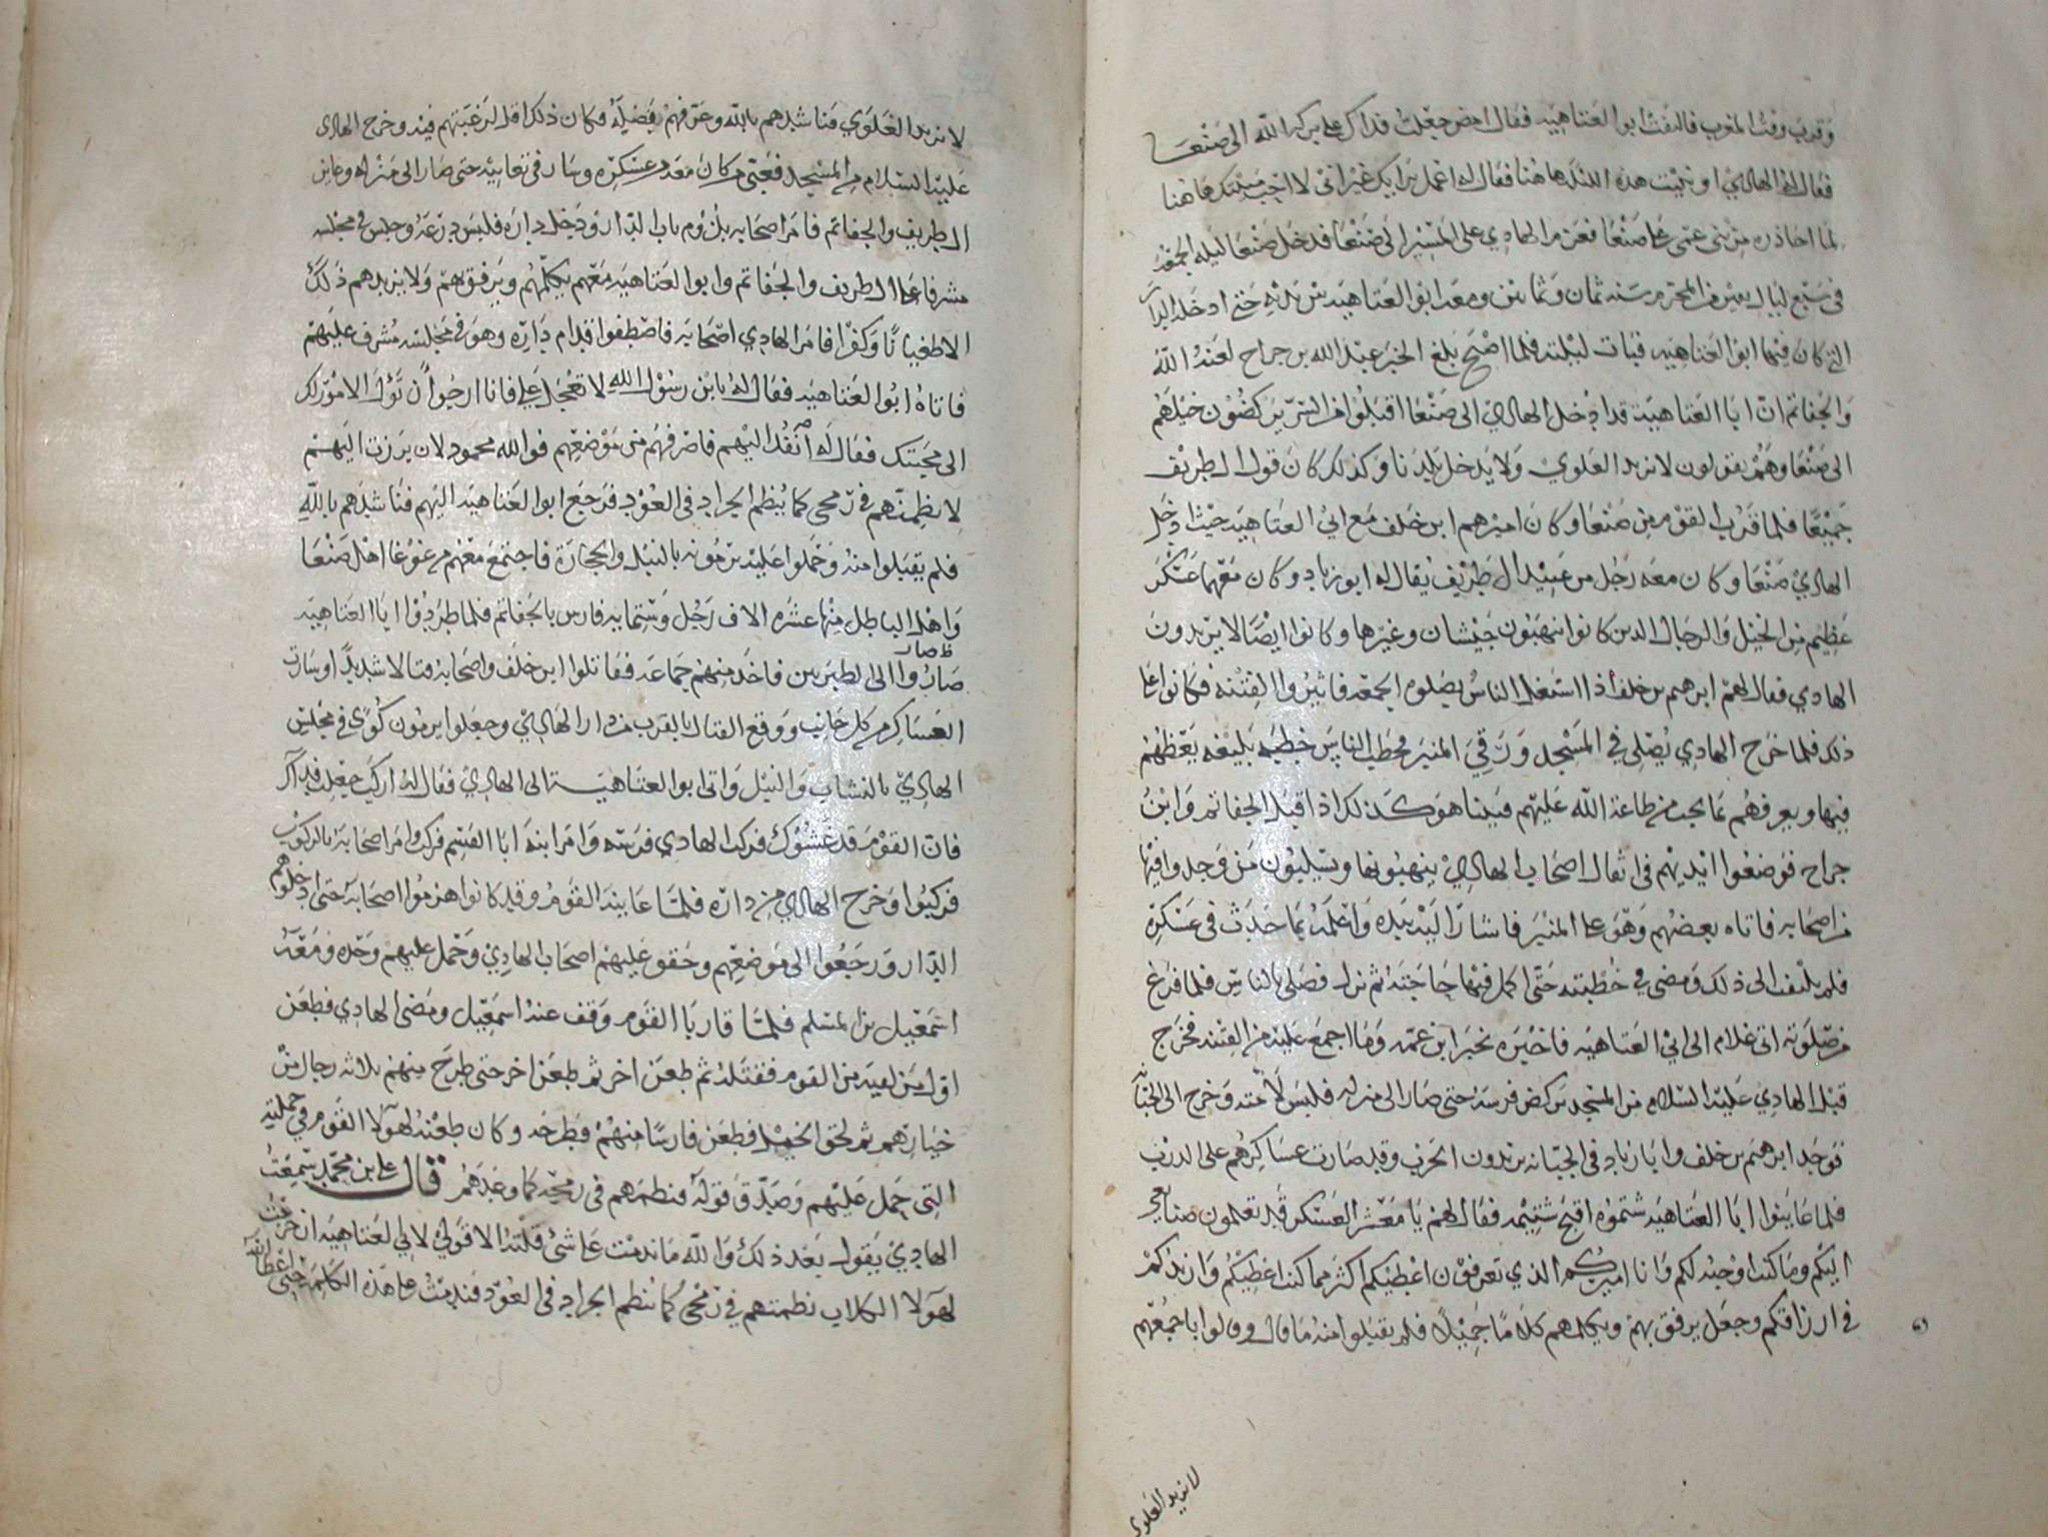 وقرب وقت المغرب فالتفت ابوا العتاهيه فقال امض جعلت فداك على بركه الله الى صنعا
فقال له الهادي او نبيت هذه الليله هاهنا فقال له اعمل برايك غير اني لا احب مبيتك هاهنا
لما احاذره من بني عمي على صنعا فعزم الهادي على المسير الى صنعا فدخل صنعا ليله الجمعه
في سبع ليال بقين من المحرم سنه ثمان وثمانين ومعه ابوا العتاهيه بين يديه حتى ادخله الدار
التي كان فيها ابوا العتاهيه فبات ليلته فلما اصبح بلغ الخبر عبد الله بن جراح لعنه الله
والجفاتم ان ابا العتاهيه قد ادخل الهادي الى صنعا اقبلوا من السر يركضون خيلهم
الى صنعا وهم يقولون لا نريد العلوي ولا يدخل بلدنا وكذلك كان قول ال طريف
جميعا فلما قرب القوم من صنعا وكان اميرهم ابن خلف مع ابي العتاهيه حيث ادخل
الهادي صنعا وكان معه رجل من عبيد ال طريف يقال له ابو زياد وكان معهما عسكر
عظيم من الخيل والرجال الذين كانوا ينهبون جيشان وغيرها وكانوا ايضا لا يريدون
الهادي فقال لهم ابرهيم بن خلف اذا استغل الناس بصلوه الجمعه فاثيروا الفتنه فكانوا على
ذلك فلما خرج الهادي يصلي في المسجد ورقي المنبر فخطب الناس خطبه بليغه يعظهم
فيها ويعرفهم بما يجب من طاعة الله عليهم فبينا هو كذلك اذ اقبل الجفاتم وابن
جراح فوضعوا ايديهم في اثقال اصحاب الهادي ينهبونها ويسلبون من وجدوا فيها
من اصحابه فاتاه بعضهم وهو على المنبر فاشار اليه بيده واعلمه بما حدث في عسكره
فلم يلتفت الى ذلك ومضى في خطبته حتى اكمل فيها حاجته ثم نزل فصلى بالناس فلما فرغ
من صلوته اتى غلام الى ابي العتاهيه فاخبره بخبر ابن عمه وما اجمع عليه من الفتنه فخرج
قبل الهادي عليه السلام من المسجد يركض فرسه حتى صار الى منزله فلبس لامته وخرج الى الجبانه
فوجد ابرهيم بن خلف وابا زياد في الجبانه يريدون الحرب وقد صارت عساكرهم على الدرب
فلما عاينوا ابا العتاهيه شتموه اقبح شتيمه فقال لهم يا معشر العسكر قد تعلمون صنايعي
اليكم وما كنت اوجبه لكم وانا اميركم الذي تعرفون اعطيكم اكثر مما كنت اعطيكم وازيدكم
في ارزاقكم وجعل يرفق بهم ويكلمهم كلاما جميلا فلم يقبلوا منه ما قال وقالوا باجمعهم
لا نريد العلوي
لا نريد العلوي فناشدهم بالله وعرفهم بفضيله فكان ذلك اقل لرغبتهم فيه وخرج الهادي
عليه السلام من المسجد فعبى من كان معه من عسكره وسار في تعابيه حتى صار الى منزله وعاين
ال طريف والجفاتم فامر اصحابه بلزوم باب الدار ودخل داره فلبس درعه وجلس في مجلسه
مشرفا على ال طريف والجفاتم وابوا العتاهيه معهم يكلمهم ويرفق بهم ولا يزيدهم ذلك
الا طغيانا وكفرا فامر الهادي اصحابه فاصطفوا قدام داره وهو في مجلسه مشرف عليهم
فاتاه ابوا العتاهيه فقال له يابن رسول الله لا تعجل علي فانا ارجوا ان تؤل الامور لك
الى محبتك فقال له انفذ اليهم فاصرفهم من موضعهم فوالله محمود لان برزت اليهم
لانظمنهم في رمحي كما ينظم الجراد في العود فرجع ابوا العتاهيه اليهم فناشدهم بالله
فلم يقبلوا منه وحملوا عليه يرمونه بالنبل والحجارة فاجتمع معهم من غوغا اهل صنعا
واهل الباطل منها عشره الاف رجل وستمايه فارس بالجفاتم فلما طردوا ابا العتاهيه
ظ صار
صاروا الى الطبريين فاخذ منهم جماعه فقاتلوا ابن خلف واصحابه قتالا شديدا وسارت
العساكر من كل جانب ووقع القتال بالقرب من دار الهادي وجعلوا يرمون كوى في مجلس
الهادي بالنشاب والنبل واتى ابوا العتاهيه الى الهادي فقال له اركب جعلت فداك
فان القوم قد غشوك فركب الهادي فرسه وامر ابنه ابا القسم فركب وامر اصحابه بالركوب
فركبوا وخرج الهادي من داره فلما عاينه القوم وقد كانوا هزموا اصحابه حتى ادخلوهم
الدار ورجعوا الى موضعهم وحقق عليهم اصحاب الهادي وحمل عليهم وحده ومعه
اسمعيل بن المسلم فلما قاربا القوم وقف عنه اسمعيل ومضى الهادي فطعن
اول من لقيه من القوم فقتله ثم طعن اخر ثم طعن اخر حتى طرح منهم ثلاثه رجال من
خيارهم ثم لحق الخيل فطعن فارسا منهم فطرحه وكان طعنه لهولا القوم في حملته
التي حمل عليهم وصدق قوله فنظمهم في رمحه كما وعدهم قال علي بن محمد سمعت
الهادي يقول بعد ذلك والله ما ندمت على شى قلته الا قولي لابي العتاهيه ان خرجت
لهولا الكلاب نظمتهم في رمحي كما ينظم الجراد في العود فندمت على هذه الكلمه حتى اعطا الله